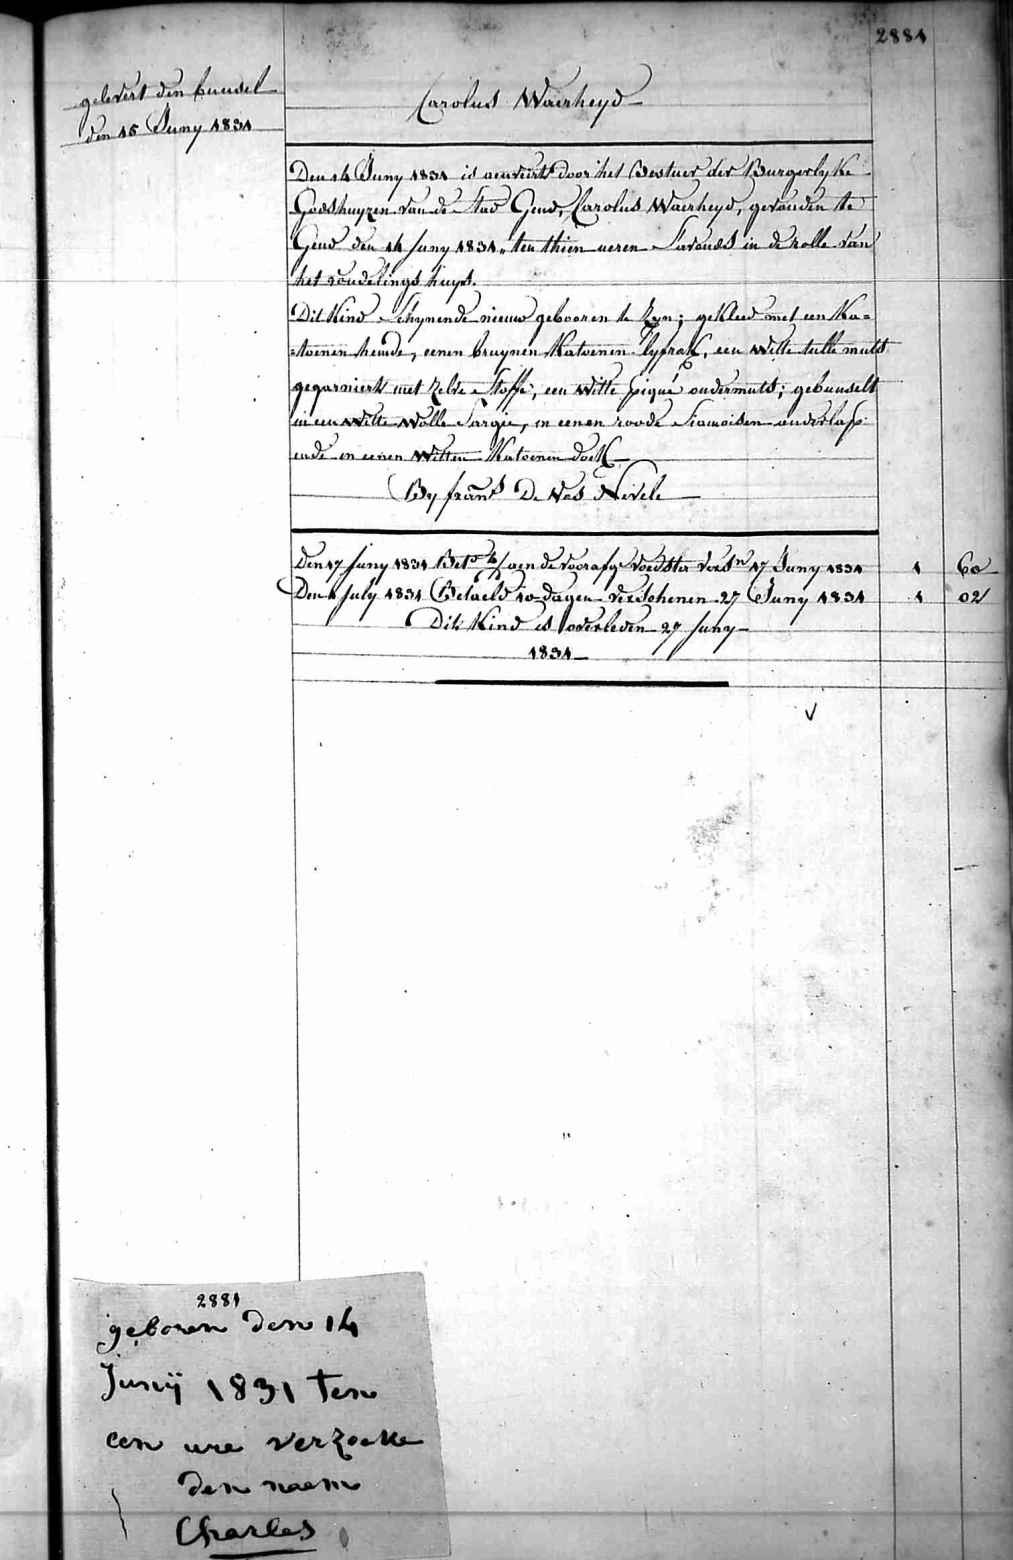 2881
gelevert den bunsel
den 15 Juny 1831
Carolus Waerheyd
Den 14 Juny 1831 is aenveirt door het Bestuer der Burgerlyke
Godshuyzen van de Stad Gend, Carolus Waerheyd, gevonden te
Gend den 14 Juny 1831, ten thien ueren Savonds in de rolle van
het vondelings huys.
Dit Kind Schynende nieuw gebooren te Zyn; gekleed met een Ka=
=toenen hemde, eenen bruynen Katoenen lyfrok, een witte tulle muts
gegarniert met Zelve Stoffe, een witte piqué ondermuts; gebunselt
in een witte wolle Sargie, en eenen roode Siamoisen onderlap
ende en eenen witten Katoenen doek
By frans De Vos Nevele
Den 17 Juny 1831 Bet. aen de voorafg. voedster vers.n 17 Juny 1831 1 60
Den July 1831 Betaeld 10 dagen verschenen 27 Juny 1831 1 02
Dit Kind is overleden 27 Juny
1831
2881
geboren den 14
Junÿ 1831 ten
een ure verzoeke
den naem
Charles